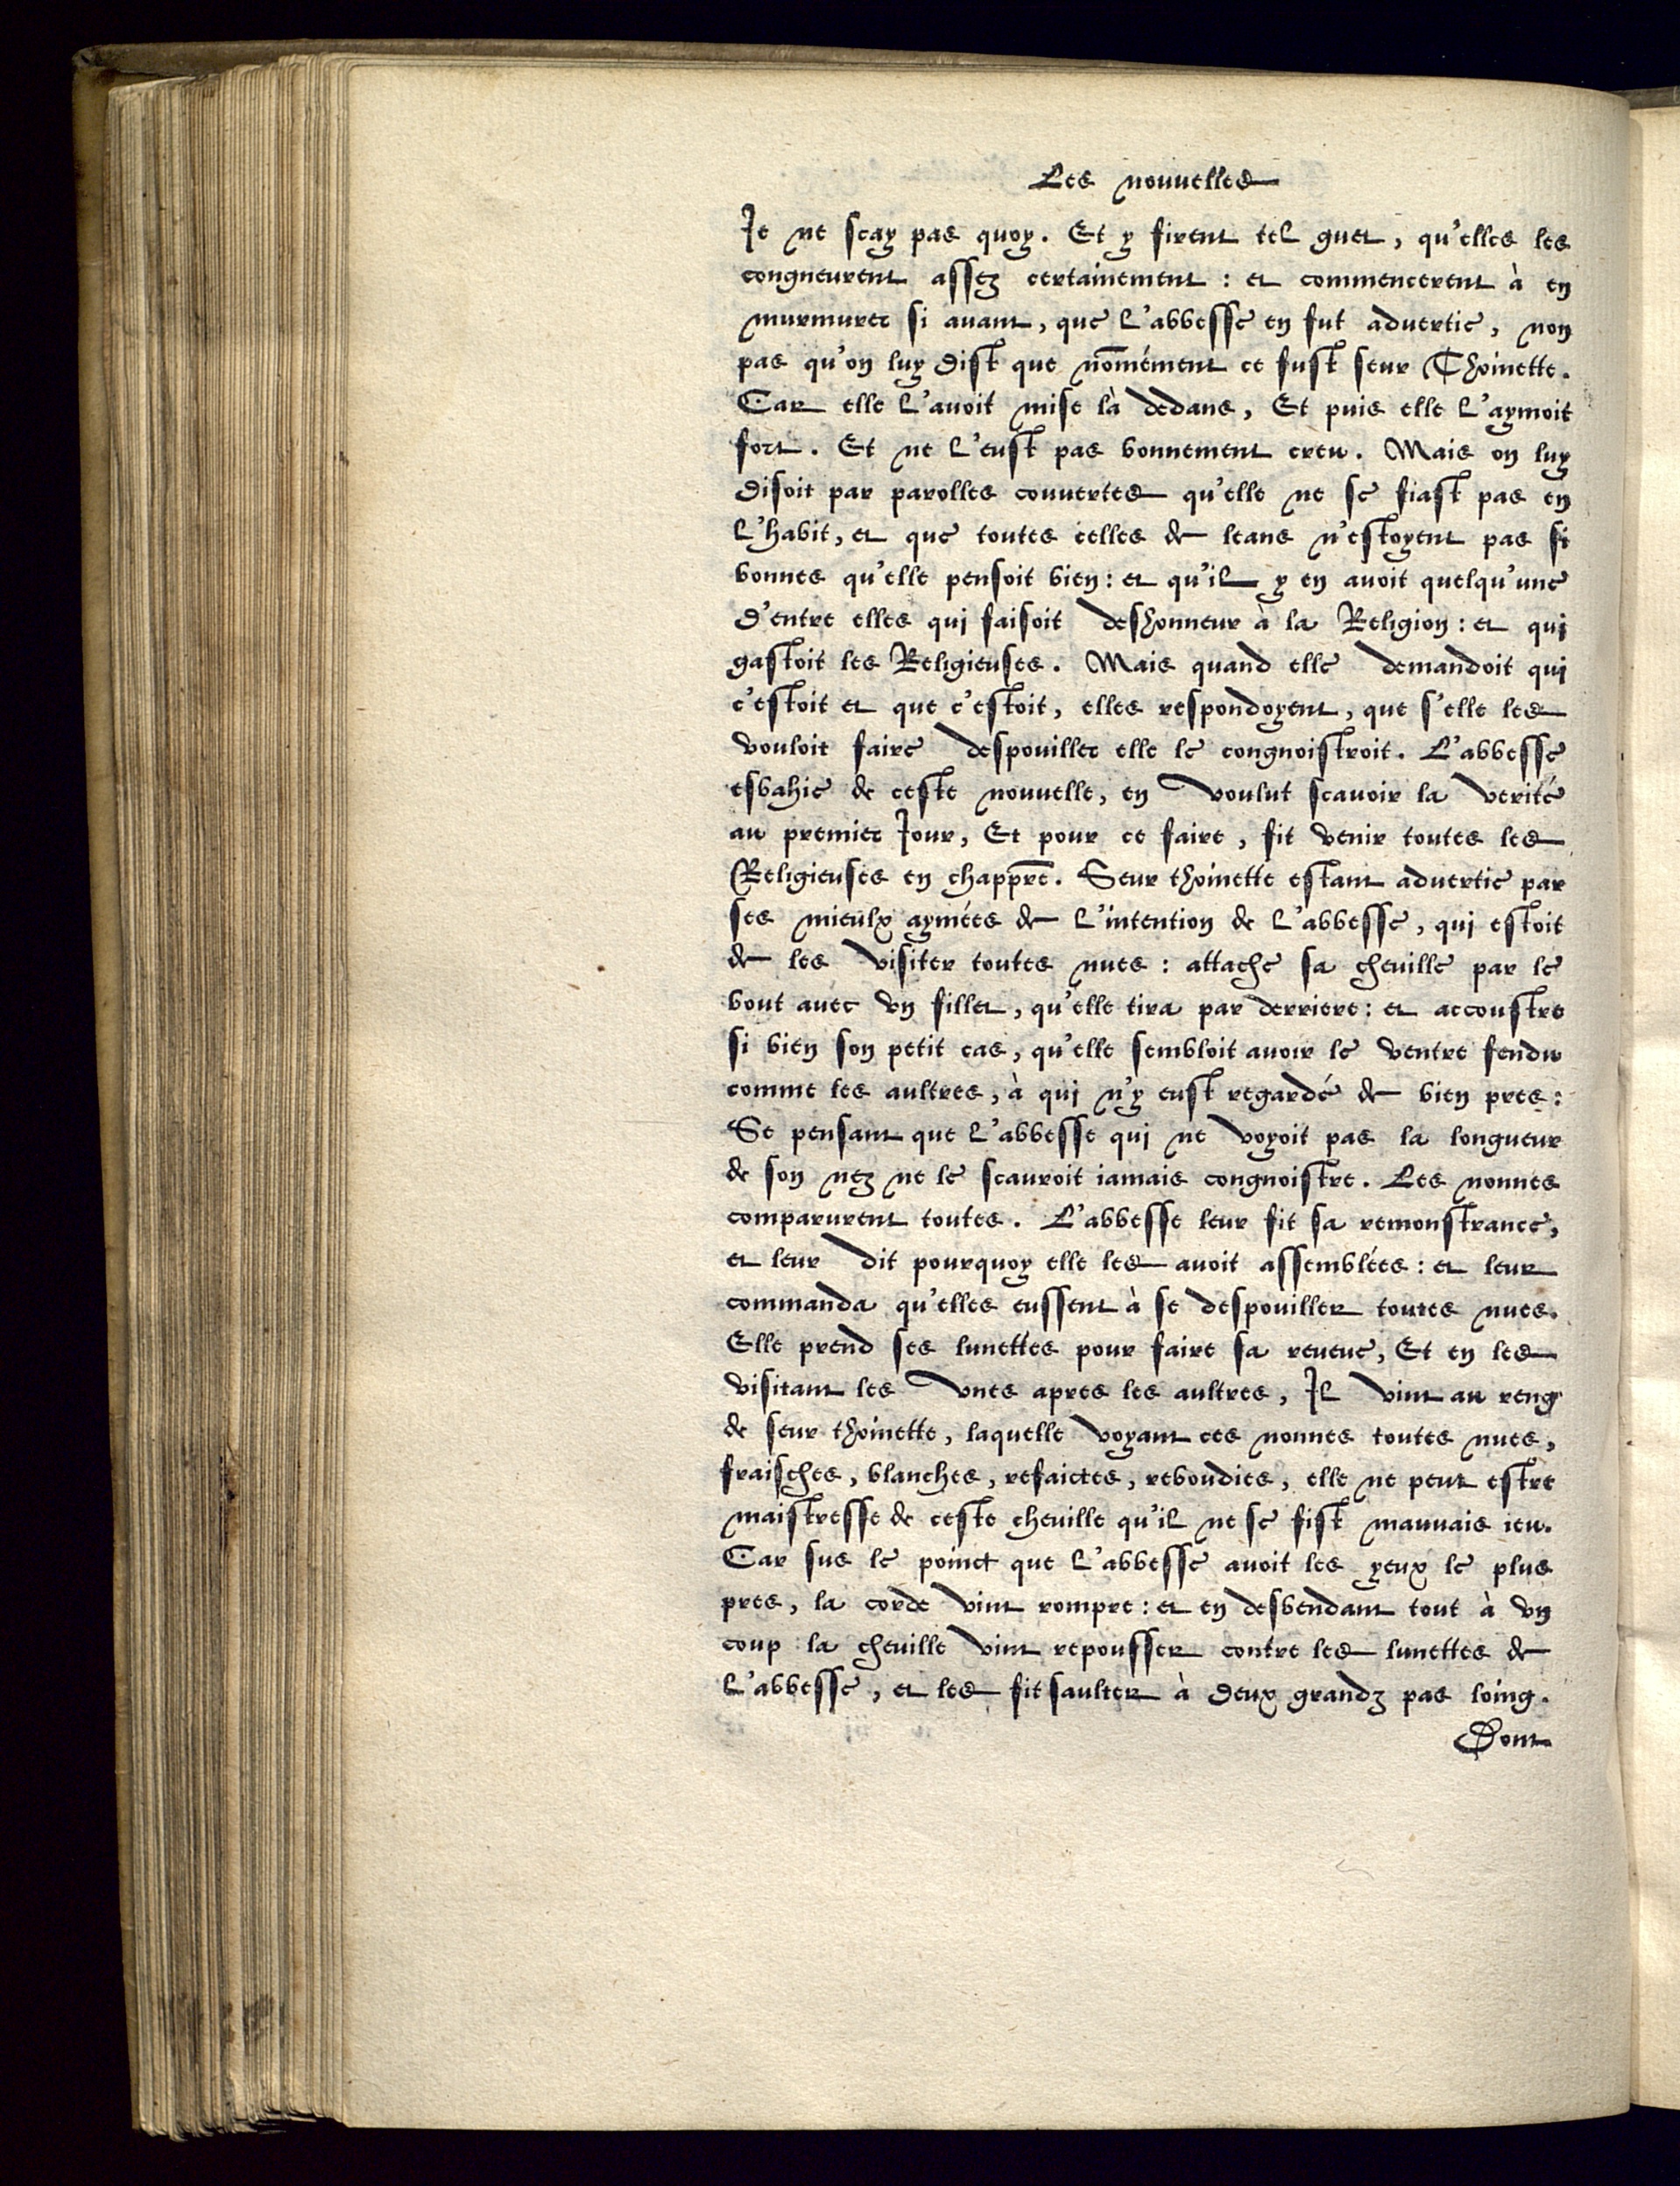 Les nouuelles
Je ne scay pas quoy. Et y firent tel guet, qu'elles les
congneurent assez certainement : et commencerent à en
murmurer si auant, que l'abbesse en fut aduertie, non
pas qu'on luy dist que nōmément ce fust seur Thoinette.
Car elle l'auoit mise là dedans, Et puis elle l'aymoit
fort. Et ne l'eust pas bonnement creu. Mais on luy
disoit par parolles couuertes qu'elle ne se fiast pas en
l'habit, et que toutes celles de leans n'estoyent pas si
bonnes qu'elle pensoit bien : et qu'il y en auoit quelqu'une
d'entre elles qui faisoit deshonneur à la Religion : et qui
gastoit les Religieuses. Mais quand elle demandoit qui
c'estoit et que c'estoit, elles respondoyent, que s'elle les
vouloit faire despouiller elle le congnoistroit. L'abbesse
esbahie de ceste nouuelle, en voulut scauoir la verité
au premier Jour, Et pour ce faire, fit venir toutes les
Religieuses en chappr̄e. Seur thoinette estant aduertie par
ses mieulx aymées de l'intention de l'abbesse, qui estoit
de les visiter toutes nues : attache sa cheuille par le
bout auec vn fillet, qu'elle tira par derriere : et accoustre
si bien son petit cas, qu'elle sembloit auoir le ventre fendu
comme les aultres, à qui n'y eust regardé de bien pres :
Se pensant que l'abbesse qui ne voyoit pas la longueur
de son nez ne le scauroit iamais congnoistre. Les nonnes
comparurent toutes. L'abbesse leur fit sa remonstrance,
et leur dit pourquoy elle les auoit assemblées : et leur
commanda qu'elles eussent à se despouiller toutes nues.
Elle prend ses lunettes pour faire sa reueue, Et en les
visitant les vnes apres les aultres, Il vint au reng
de seur thoinette, laquelle voyant ces nonnes toutes nues,
fraisches, blanches, refaictes, reboudies, elle ne peut estre
maistresse de ceste cheuille qu'il ne se fist mauuais ieu.
Car sus le poinct que l'abbesse auoit les yeux le plus
pres, la corde vint rompre : et en desbendant tout à vn
coup la cheuille vint repousser contre les lunettes de
l'abbesse, et les fit saulter à deux grandz pas loing.
Dont